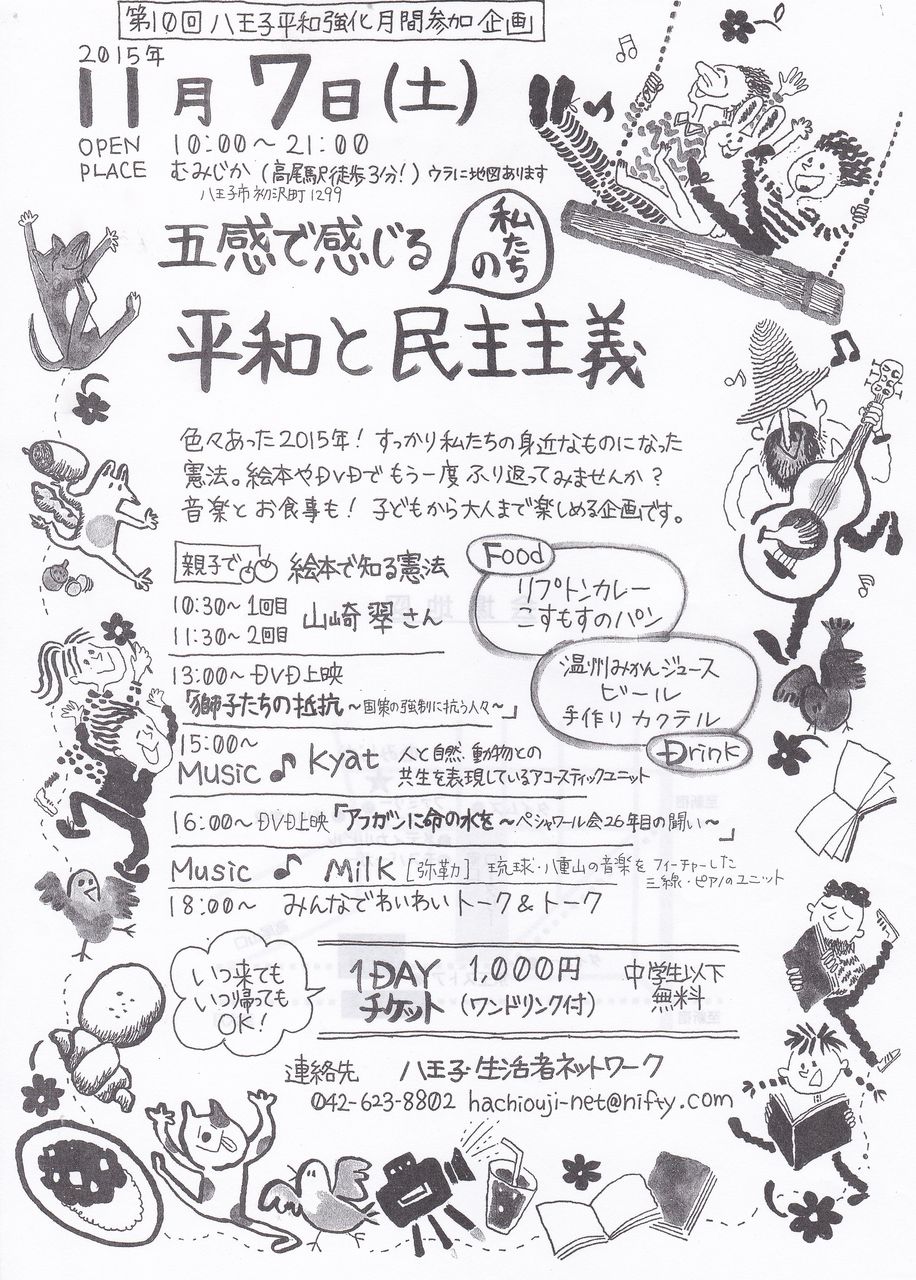 第10回 八王子平和強化月間参加企画
2015年
11月7日(土)
OPEN 10:00～21:00
PLACE むみじか (高尾駅徒歩3分!) ウラに地図あります
八王子市初沢町1299
五感で感じる 私たちの
平和と民主主義
色々あった2015年! すっかり私たちの身近なものになった
憲法。絵本やDVDでもう一度ふり返ってみませんか?
音楽とお食事も! 子どもから大人まで楽しめる企画です。
親子で 絵本で知る憲法
10:30～1回目
11:30～2回目 山崎翠さん
Food
リプトンカレー
こすもすのパン
温州みかんジュース
ビール
手作りカクテル
Drink
13:00～DVD上映
「獅子たちの抵抗～国策の強制に抗う人々～」
15:00～
Music ♪ Kyat 人と自然、動物との
共生を表現しているアコースティックユニット
16:00～DVD上映「アフガンに命の水を～ペシャワール会26年目の闘い～」
Music ♪ Milk [弥勒] 琉球・八重山の音楽をフィーチャーした
三線・ピアノのユニット
18:00～ みんなでわいわいトーク&トーク
いつ来ても
いつ帰っても
OK!
1DAY チケット
1,000円
(ワンドリンク付)
中学生以下
無料
連絡先 八王子・生活者ネットワーク
042-623-8802 hachiouji-net@nifty.com